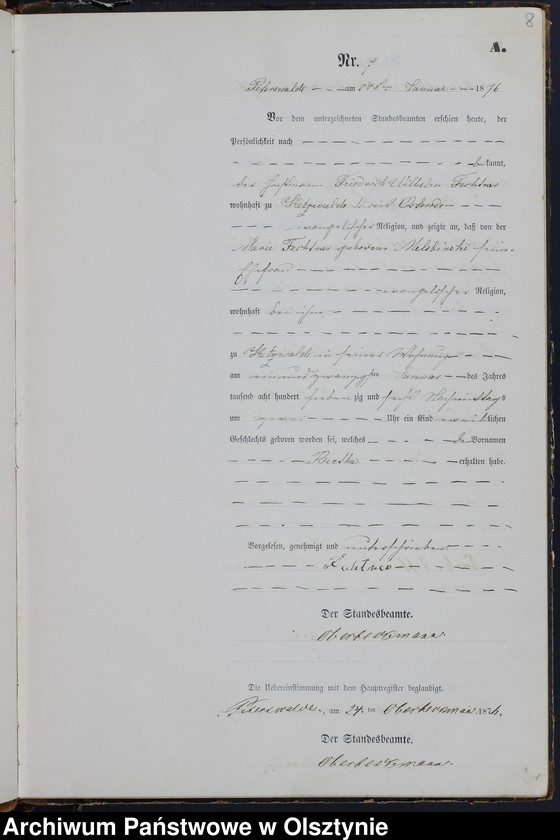 8
A.
Nr. 7
Peterswalde am Januar 1876
Vor dem unterzeichneten Standesbeamten erschien heute, der
Persönlichkeit nach
bekannt,
der Friedrich Wilhelm Fechtner
wohnhaft zu Kreis Osterode
evangelischer Religion, und zeigte an, daß von der
Marie Fechtner geborene seiner
Ehefrau
evangelischer Religion,
wohnhaft bei ihm
zu in seiner Wohnung
am einundzwanzigsten Januar des Jahres
tausend acht hundert siebenzig und sechs Nachmittags
um zwei Uhr ein Kind weiblichen
Geschlechts geboren worden sei, welches die Vornamen
Bertha erhalten habe.
Vorgelesen, genehmigt und unterschrieben
Fechtner
Der Standesbeamte.
Die Uebereinstimmung mit dem Hauptregister beglaubigt.
Peterswalde, am 24. ten 1876.
Der Standesbeamte.
Archiwum Państwowe w Olsztynie